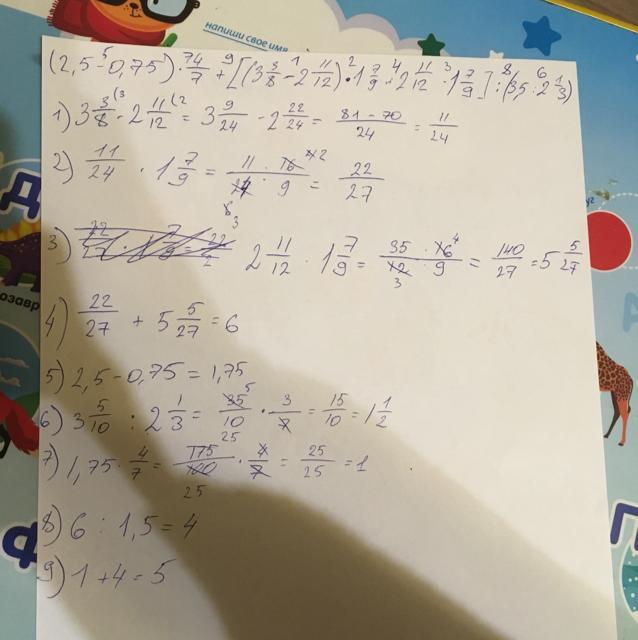 напиши свое имя
(2,5-0,75)·7 4/7+[(3 3/8-2 11/12)·1 7/9+2 11/12·1 7/9]:(3,5:2 1/3)
1) 3 3/8 - 2 11/12 = 3 9/24 - 2 22/24 = 81-70/24 = 11/24
2) 11/24 · 1 7/9 = 11·16/24·9 = 22/27
3) 2 11/12 · 1 7/9 = 35·16/12·9 = 140/27 = 5 5/27
4) 22/27 + 5 5/27 = 6
5) 2,5-0,75 = 1,75
6) 3 5/10 : 2 1/3 = 35/10 · 3/7 = 15/10 = 1 1/2
7) 1,75 · 4/7 = 175/100 · 4/7 = 25/25 = 1
8) 6 : 1,5 = 4
9) 1+4=5